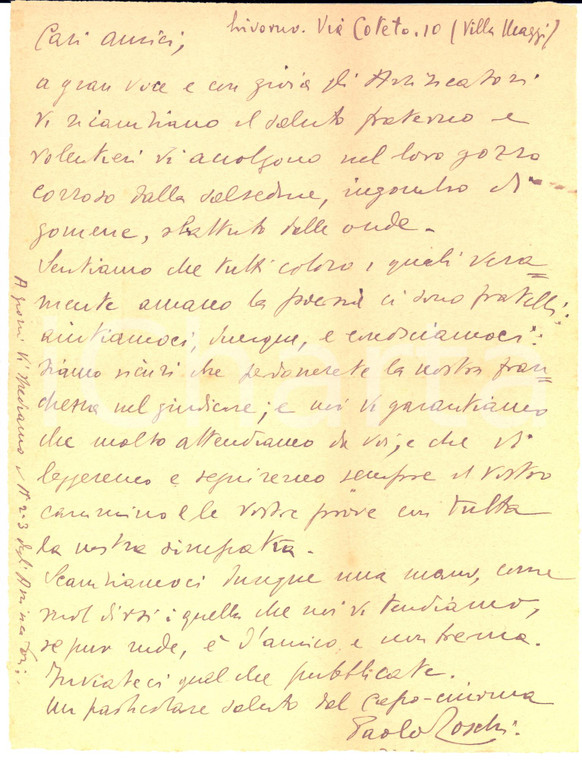 Livorno. Via Coteto. 10 (Villa Maggi)
Cari amici,
a gran voce e con gioia gli Arrisicatori
vi ricambiano il saluto fraterno e
volentieri vi accolgono nel loro gozzo
corroso dalla salsedine, ingombro di
gomene, sbattuto dalle onde.
Sentiamo che tutti coloro i quali vera=
mente amano la poesia ci sono fratelli:
aiutiamoci, dunque, e conosciamoci.
Siamo sicuri che perdonerete la nostra fran=
chezza nel giudicare; e noi vi garantiamo
che molto attendiamo da voi, e che vi
leggeremo e seguiremo sempre il vostro
cammino e le vostre prove con tutta
la nostra simpatia.
Scambiamoci dunque una mano, come
suol dirsi: quella che noi vi tendiamo,
seppur rude, è d'amico e non trema.
Inviateci quel che pubblicate.
Un particolare saluto dal capo-ciurma
Paolo
A giorni vi manderemo il N° 2-3 degli Arrisicatori.
Charta